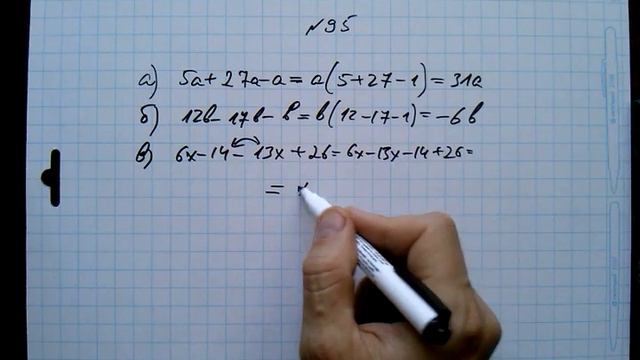 №95
а) 5a+27a-a=a(5+27-1)=31a
б) 12b-17b-b=b(12-17-1)=-6b
в) 6x-14-13x+26=6x-13x-14+26=
=